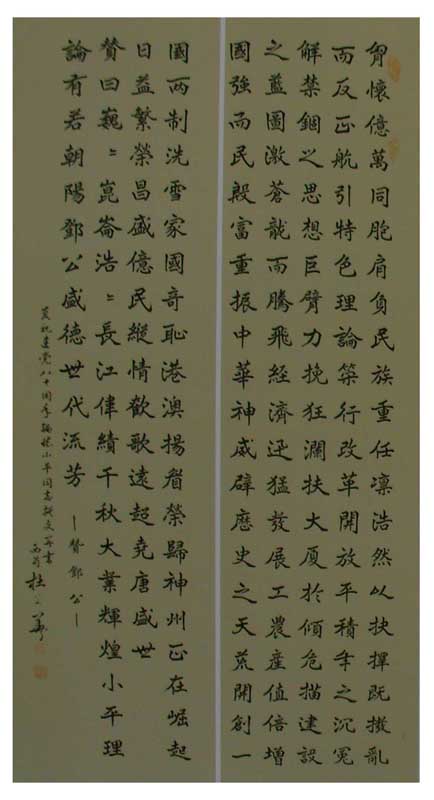 胷懷億萬同胞肩負民族重任凛浩然以抉擇既撥亂
而反正航引特色理論築行改革開放平積年之沉冤
解禁錮之思想巨臂力挽狂瀾扶大厦於傾危描建設
之藍圖激蒼龍而騰飛經濟迅猛發展工農產值倍增
國強而民殷富重振中華神威辟歷史之天荒開創一
國兩制洗雪家國奇恥港澳揚眉榮歸神州正在崛起
日益繁榮昌盛億民縱情歡歌遠超堯唐盛世
贊曰巍〻崑崙浩〻長江偉績千秋大業輝煌小平理
論有若朝陽鄧公盛德世代流芳 —贊鄧公—
祝建党八十周年緬懷小平同志撰文并書
杜文華